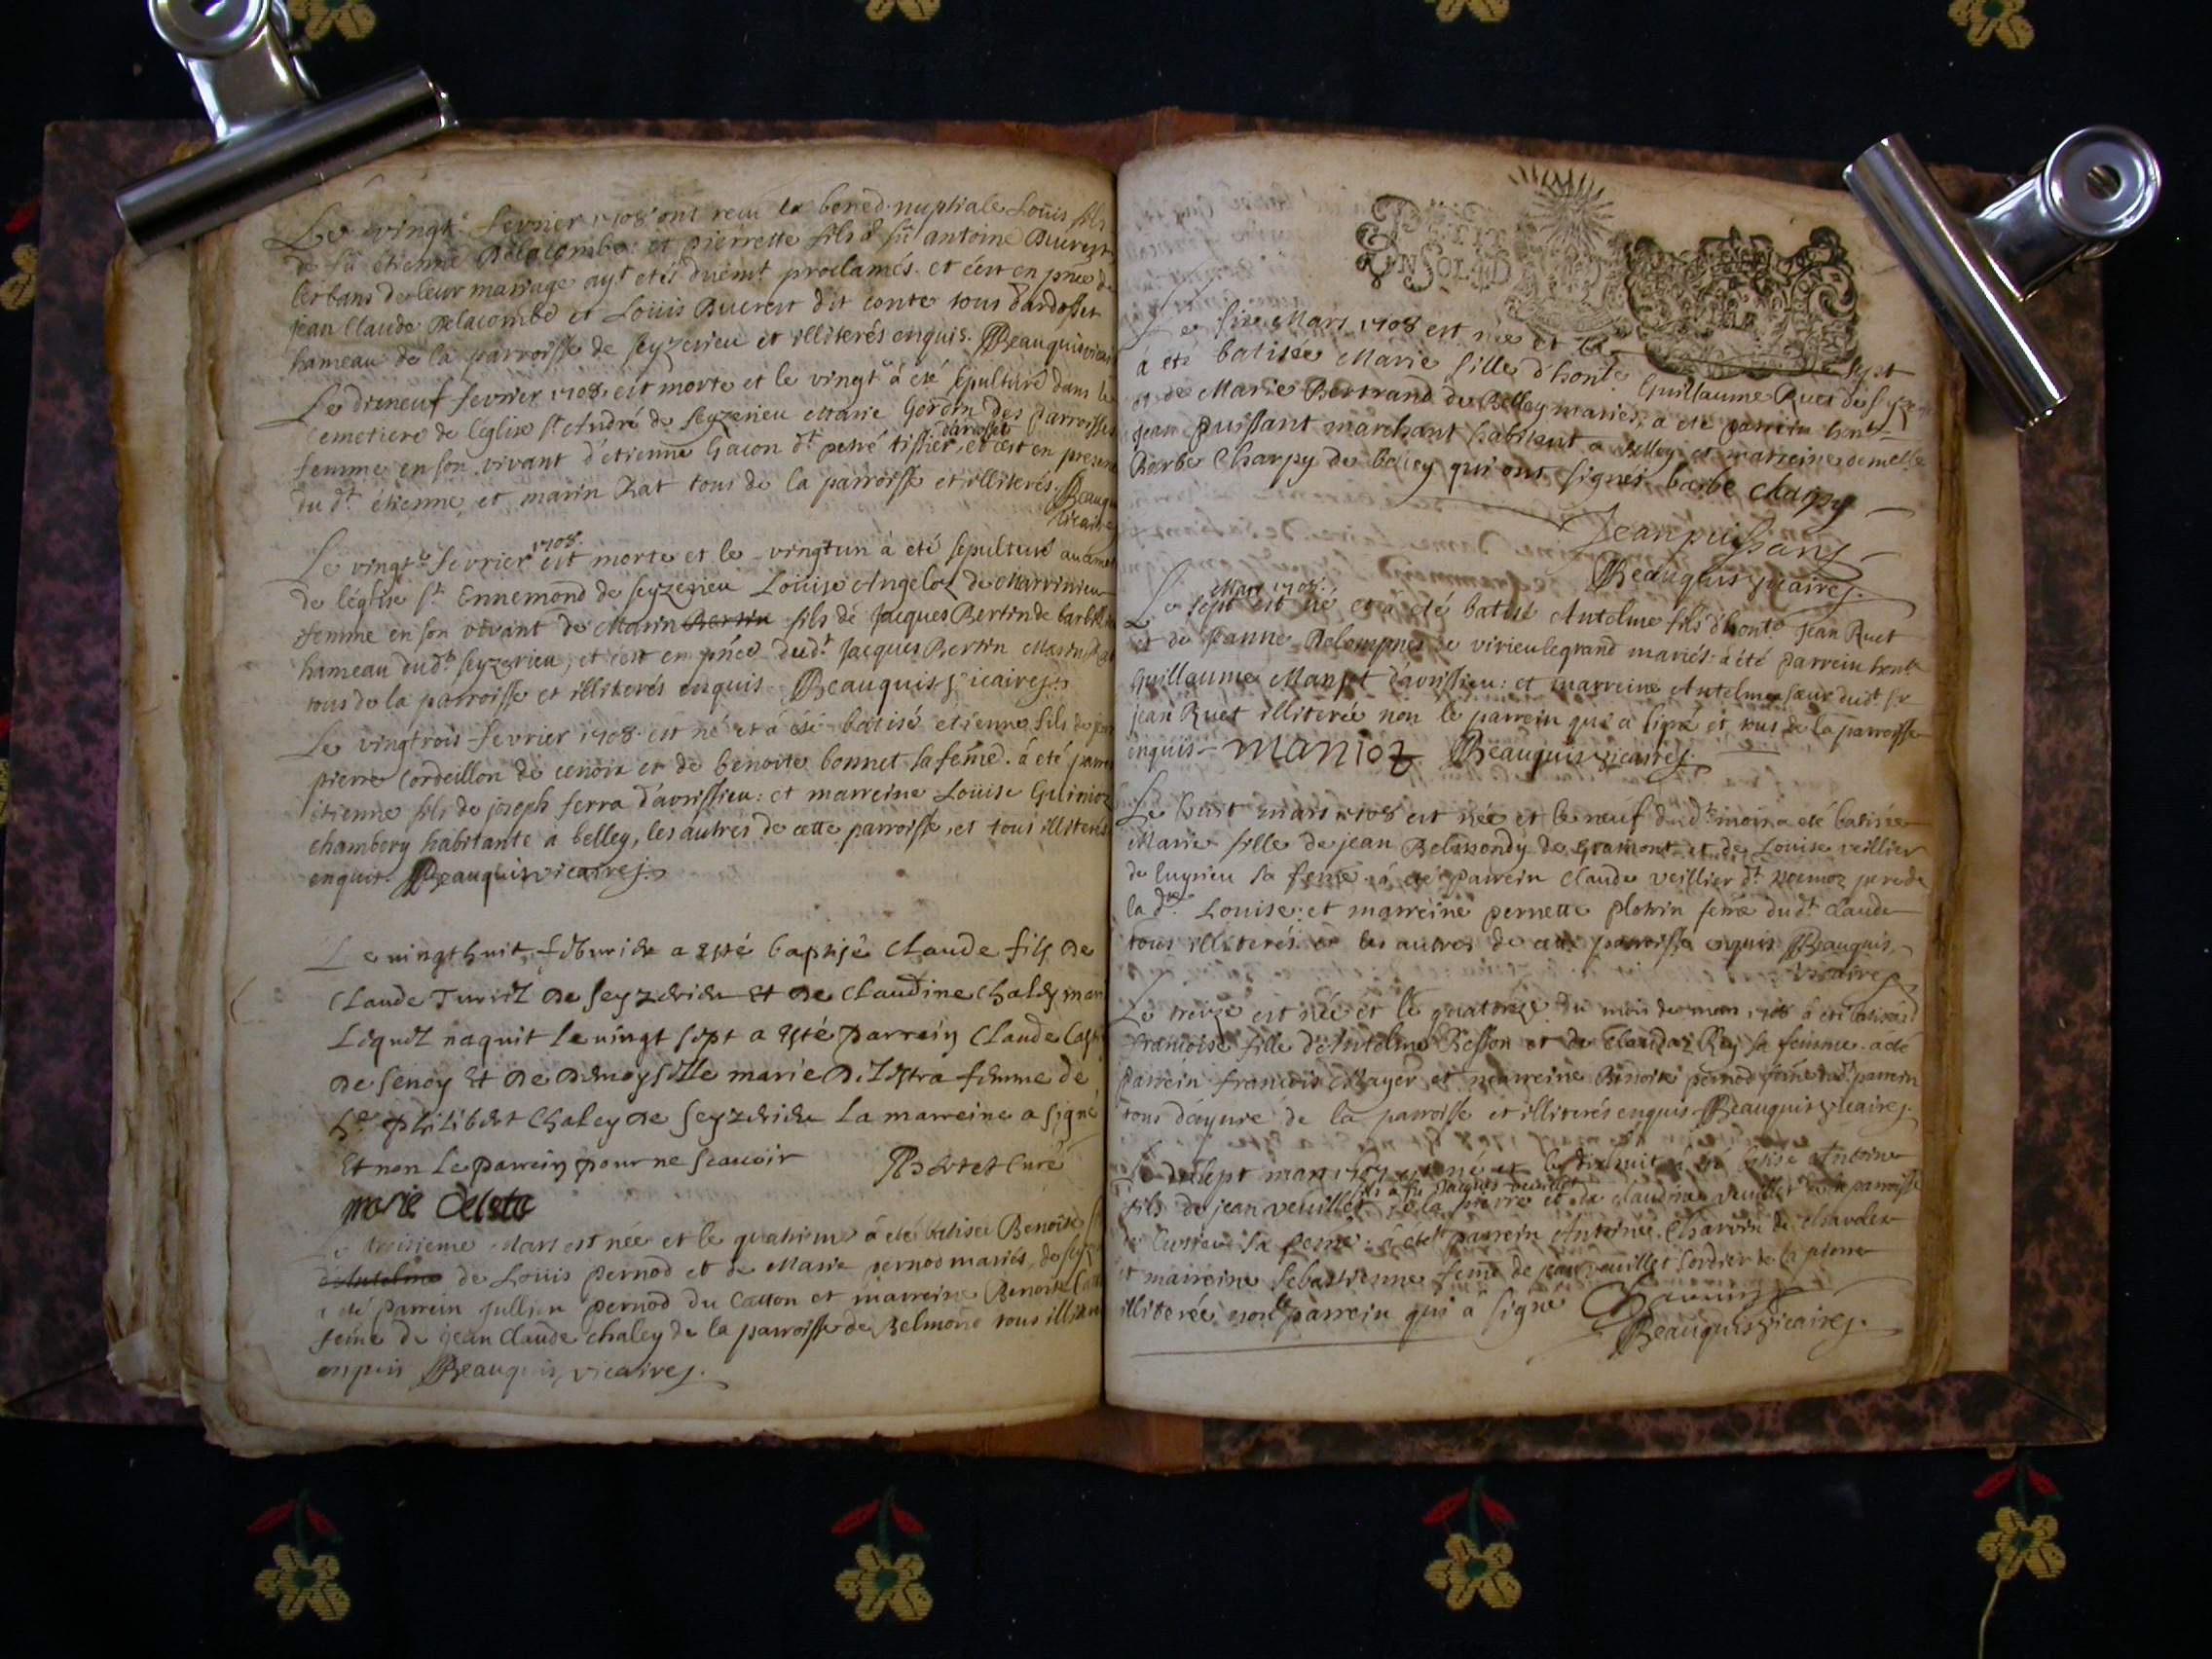 Le vingt.e fevrier 1708 ont receu la bened. nuptiale Loüis fils
de fû étienne Delacombe: et pierrette fils d fû antoine Buevest
les bans de leur mariage ay.t etés düem.t proclamés. et c'est en pnce de
jean Claude Delacombe et Loüis Bueverst dit conte tous d'ardosset
hameau de la parroisse de seyzerieu et illiterés enquis. Beauquis vicaire
Le dixneuf fevrier 1708. est morte et le vingt.e à eté sepulturé dans le
Cemetiere de l'église s.t André de seyzerieu Marie Gordin des parroisses
d'ardosset
femme en son vivant d'étienne Gacon d.t petré tissier, et c'est en presence
du d.t étienne et marin Rat tous de la parroisse et illiterés. Beauquis
vicaire
1708.
Le vingt.e fevrier est morte et le vingtun à été sepulturé au Ceme
de l'église s.t Ennemond de seyzerieu Loüise Angeloz de Marvinieu
femme en son vivant de Marin Bertin fils de Jacques Bertin de barbill
hameau dud.t seyzerieu, et c'est en pnce dud.t Jacques Bertin Marin Rat
tous de la parroisse et illiterés enquis. Beauquis vicaires.
Le vingtrois fevrier 1708. est né et à esté batisé etienne fils de jean
pierre Cordeillon de cenoix et de benoite bonnet sa feme. à eté parrein
étienne fils de joseph ferra d'avrissieu: et marreine Loüise Guinioz
chambery habitante a belley, les autres de cette parroisse, et tous illiterés
enquis. Beauquis vicaires.
Le uingt huit, feburier a esté baptisé Claude fils de
Claude Turril de seyzerieu Et de Claudine Chaley mar
Lequel naquit le uingt sept a Esté Parrein Claude Cast
de senoy Et de demoyselle marie Delestra femme de
h.e philibert Chaley de seyzerieu La marreine a signé
Et non le parrein pour ne scauoir Bertet Curé
marie Delestra
Le troisieme Mars est née et le quatrieme à eté batisée Benoite
d'Antelme de Loüis pernod et de Marie pernod mariés, de seyz
à eté parrein jullien pernod du Catton et marreine Benoite
feme de jean Claude chaley de la parroisse de Belmont tous illiterés
enquis Beauquis, vicaires.
Le six Mars 1708 est née et le sept
à eté batisée Marie fille d'honte Guillaume Ruet de seyz
et de Marie Bertrand de Belley mariés, à eté parrein hont
jean puissant marchant habitant a Belley et marreine demelle
Barbe Charpy de belley qui ont signés. barbe charpy
Jean puissant
Beauquis vicaires.
Mars 1708.
Le sept est né et à eté batisé Antelme fils d'honte Jean Ruet
et de Jeanne Delompnes de virieulegrand mariés: à eté parrein honte
Guillaume Manjot d'avrissieu: et marreine Antelme sœur dud.t s.r
jean Ruet illiterée non le parrein que a signé et tous de la parroisse
enquis maniot Beauquis vicaires.
Le huit mars 1708 est née et le neuf du d.t mois à eté batisée
Marie fille de jean Belmondy de gramont et de Louise veillier
de luyrieu sa feme. à eté parrein claude veillier d.t pere de
la d.te Louise: et marreine pernette plotin feme dud.t Claude
tous illiterés et les autres de cette parroisse enquis Beauquis,
vicaires
Le treize est née et le quatorze du mois de mars 1708 à eté batisée
francoise fille d'Antelme Besson et de Claudaz Rey sa femme. à eté
parrein francois Mayer et marreine Benoite pernod feme dud.t parrein
tous d'ayuré de la parroisse et illiterés enquis Beauquis vicaires.
Le dixsept mars 1708 est né et le dixhuit à eté batisé Antoine
fils à fû jacques veuillet
fils de jean veuillet de la pierre et de claudine veuillet de la parroisse
de Curtieu sa feme. à eté parrein Antoine Charvin de chavolex
et marreine sebastienne feme de jean veuillet Cordier de la pierre
illiterée non le parrein qui à signé Charvin
Beauquis vicaires.